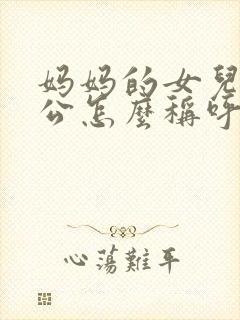 妈妈的女兒
公怎麼稱呼
心蕩難平